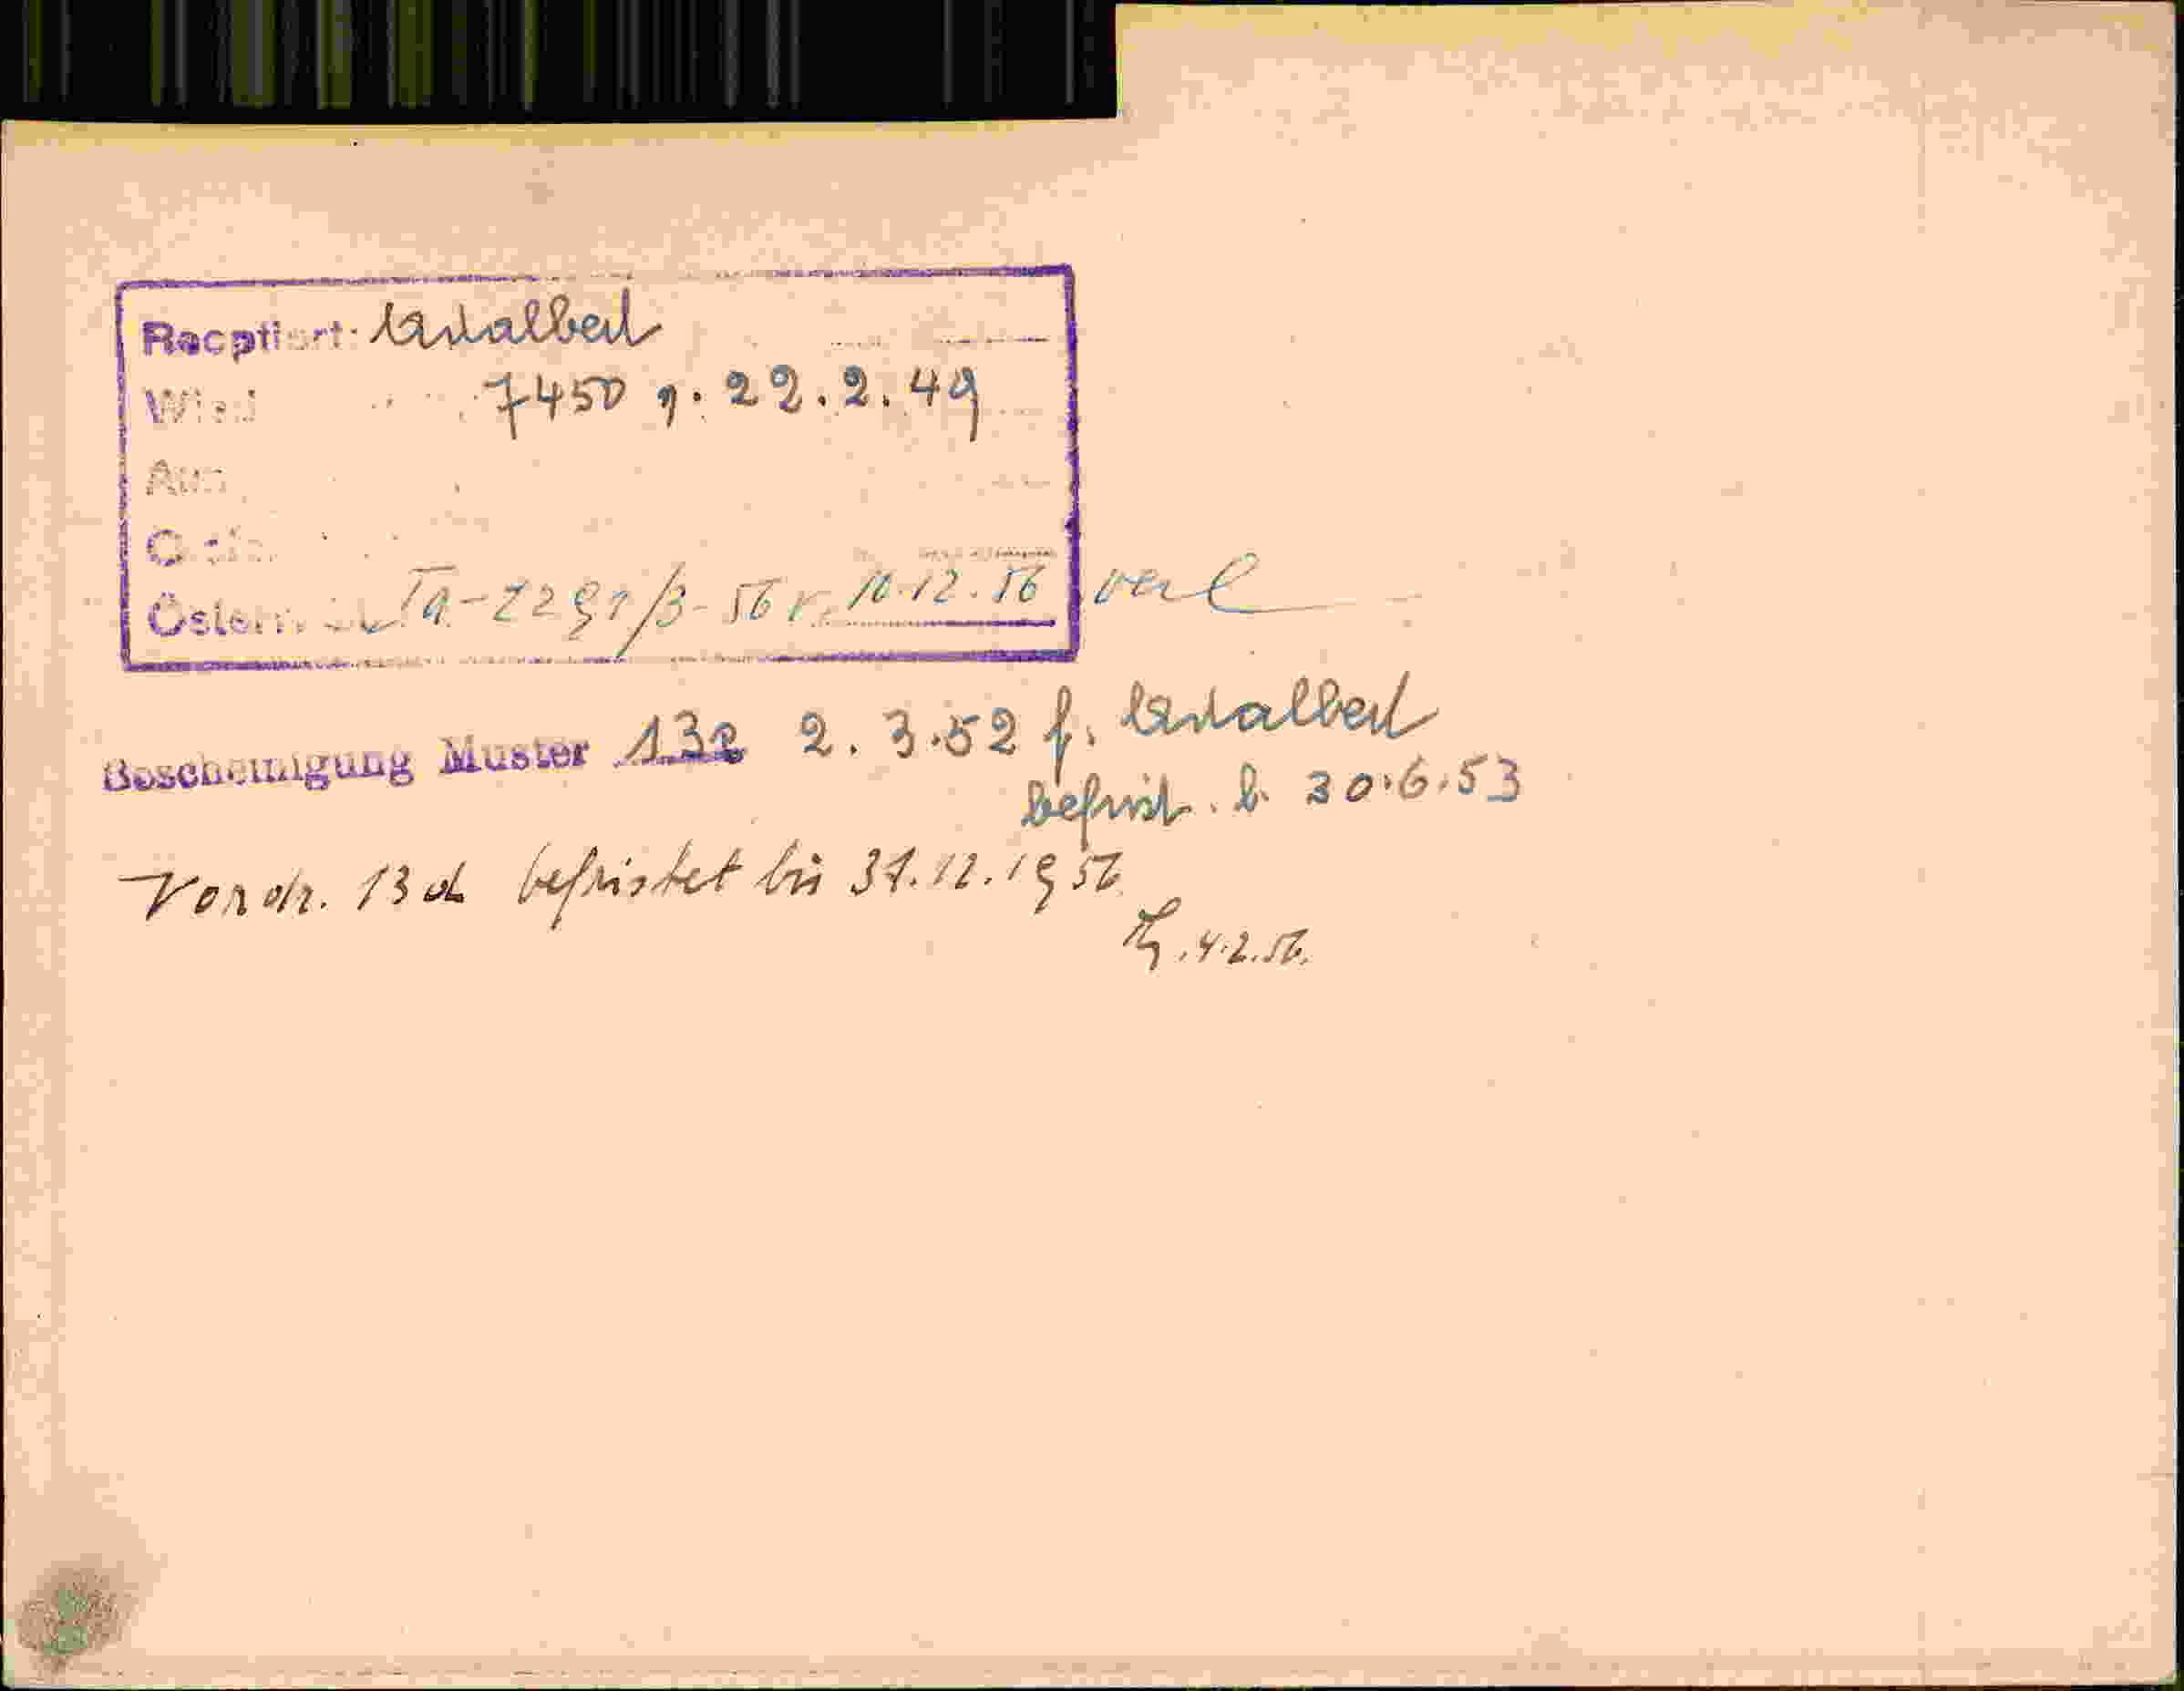 Adalbert
7450 v. 22.2.49
Österr. Ia-2291/3-56 v. 10.12.56 verl
Bescheinigung Muster 13a 2.3.52 f. Adalbert
befrist. b. 30.6.53
Vordr. 13d befristet bis 31.12.1956
4.2.56.